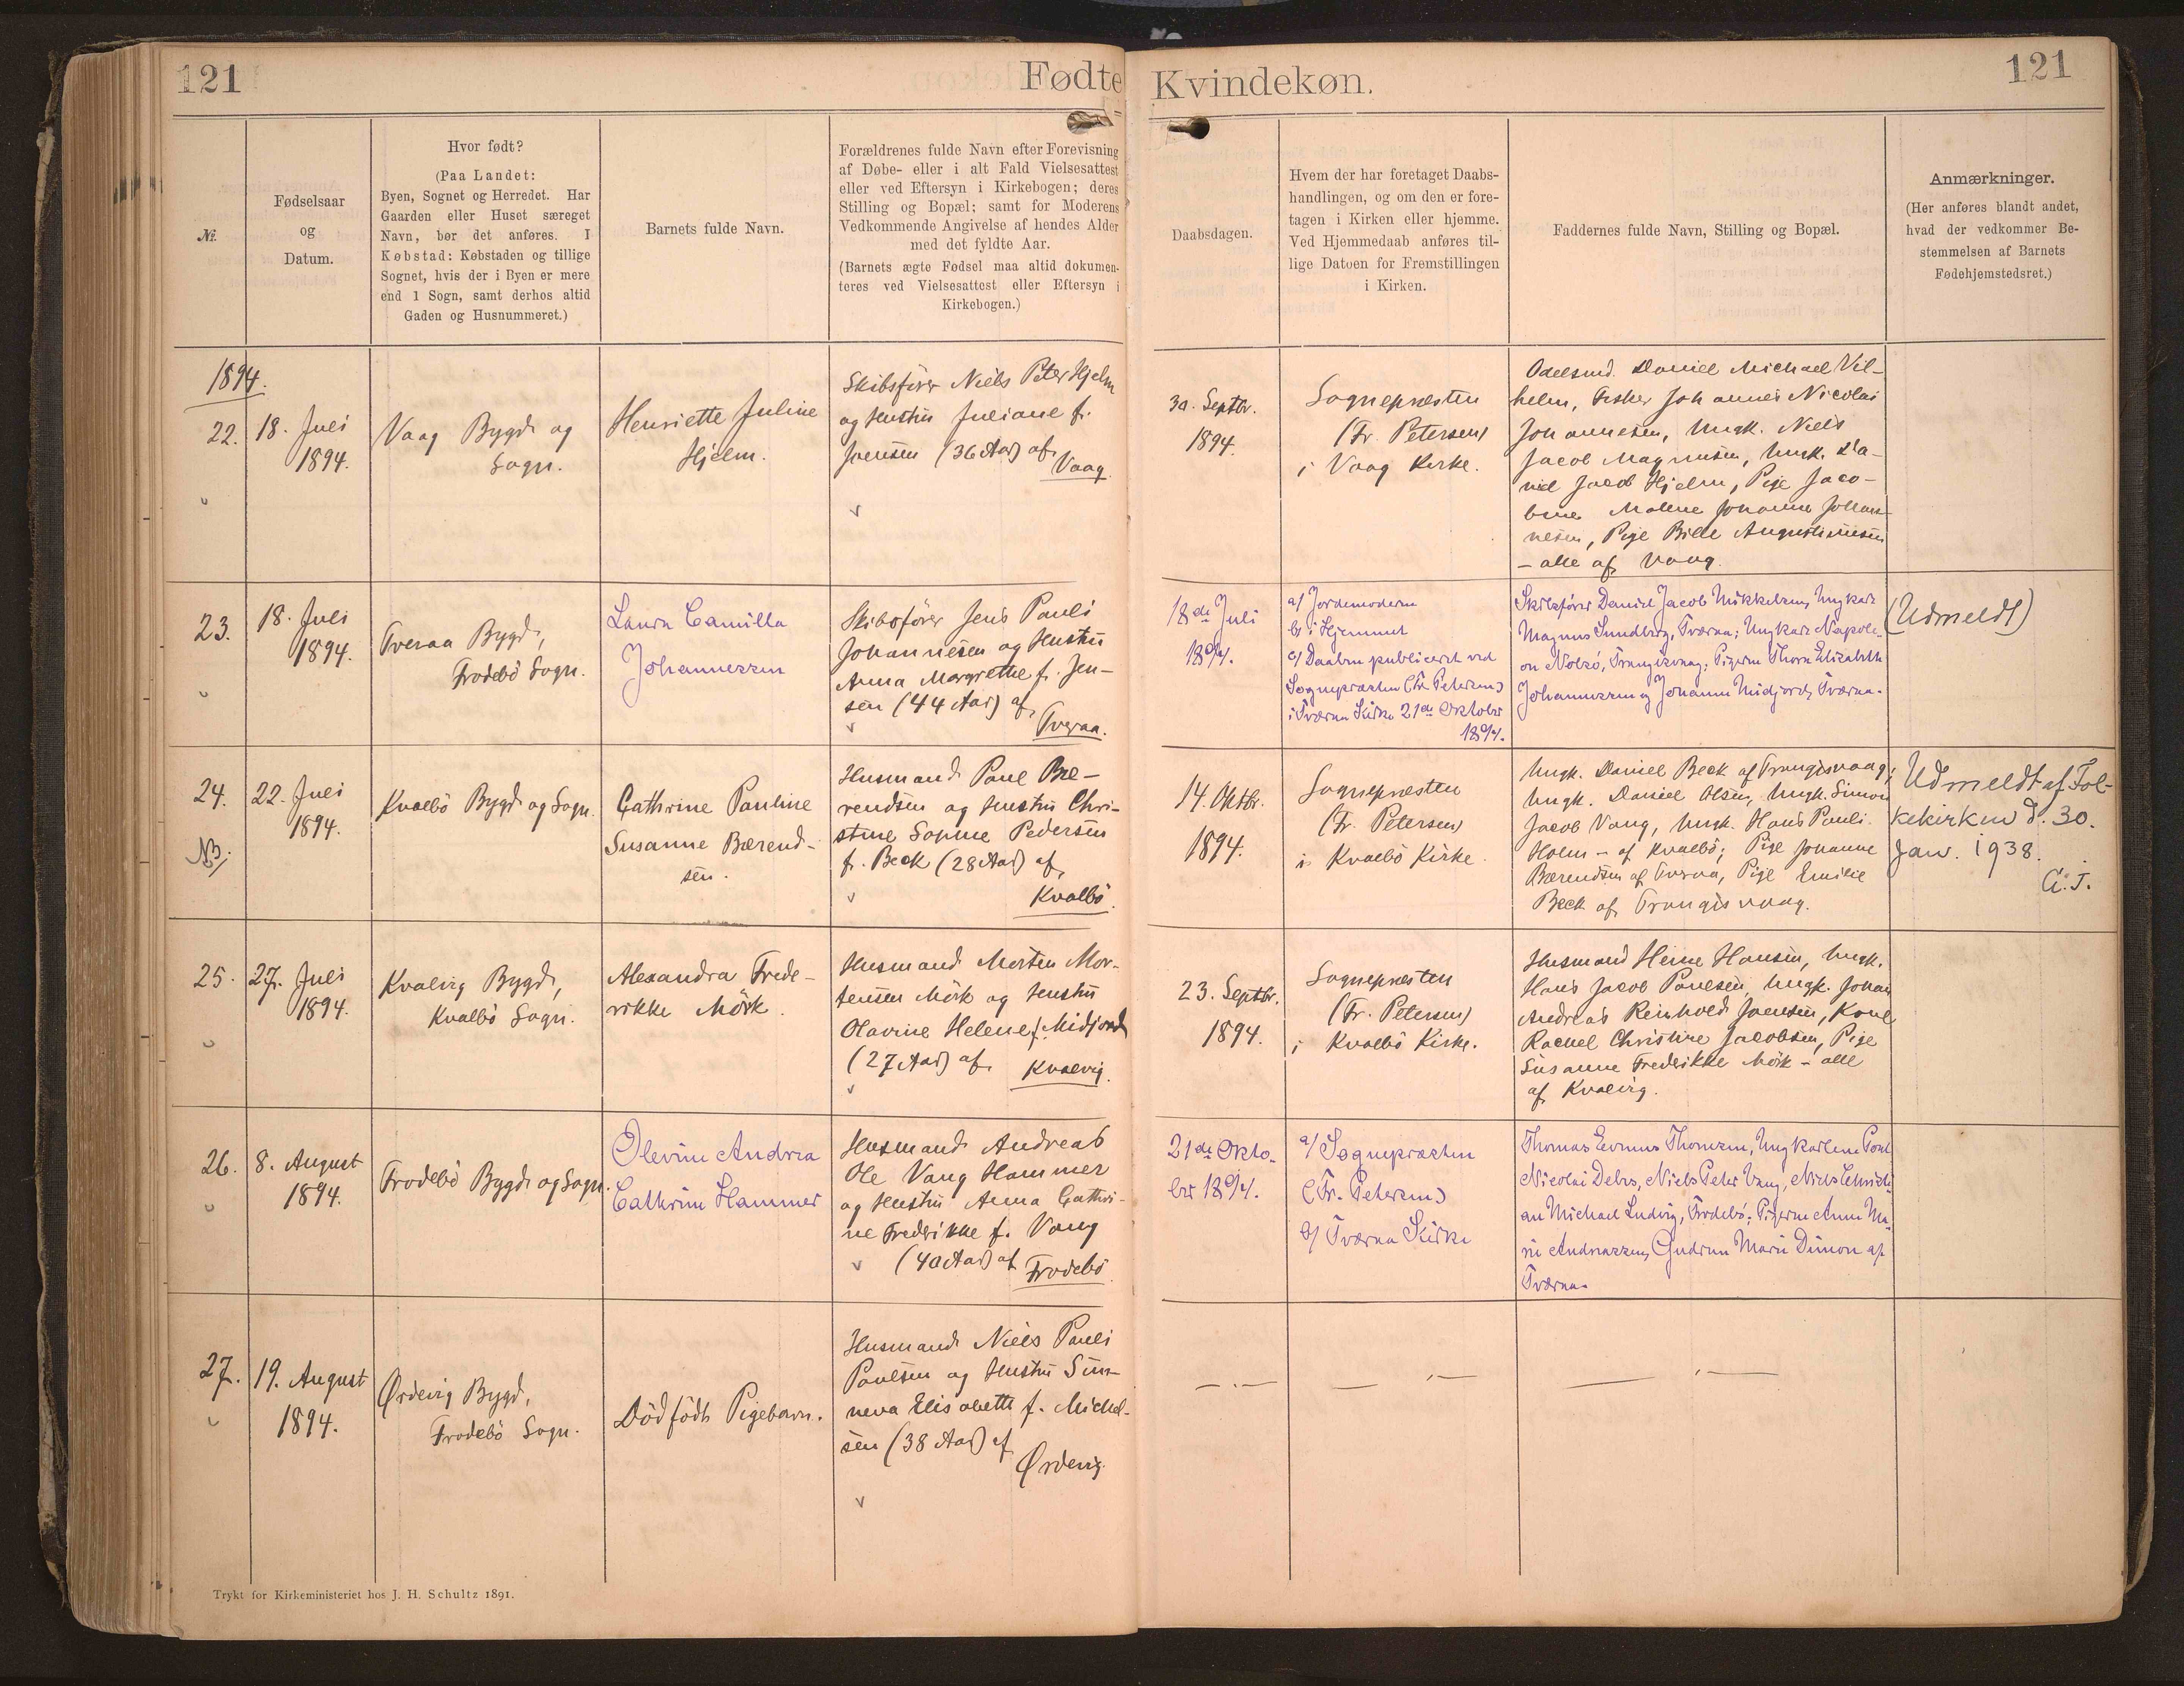 121
Fødte
Kvindekøn.
121
№.
Fødselsaar
og
Datum.
Hvor født?
(Paa Landet:
Byen, Sognet og Herredet. Har
Gaarden eller Huset særeget
Navn, bør det anføres. I
Købstad: Købstaden og tillige
Sognet, hvis der i Byen er mere
end 1 Sogn, samt derhos altid
Gaden og Husnummeret.)
Barnets fulde Navn.
Forældrenes fulde Navn efter Forevisning
af Døbe- eller i alt Fald Vielsesattest
eller ved Eftersyn i Kirkebogen; deres
Stilling og Bopæl; samt for Moderens
Vedkommende Angivelse af hendes Alder
med det fyldte Aar.
(Barnets ægte Fødsel maa altid dokumen-
teres ved Vielsesattest eller Eftersyn i
Kirkebogen.)
Daabsdagen.
Hvem der har foretaget Daabs-
handlingen, og om den er fore-
tagen i Kirken eller hjemme.
Ved Hjemmedaab anføres til-
lige Datoen for Fremstillingen
i Kirken.
Faddernes fulde Navn, Stilling og Bopæl.
Anmærkninger.
(Her anføres blandt andet,
hvad der vedkommer Be-
stemmelsen af Barnets
Fødehjemstedsret.)
1894.
22.
18. Juli
1894.
Vaag Bygd og
Sogn.
Henriette Juline
Hjelm.
Skibsfører Niels Peter Hjelm
og Hustru Juliane f.
Joensen (36 Aar) af
Vaag.
30. Septbr.
1894.
Sognepræsten
(Fr. Petersen)
i Vaag Kirke.
Odelsmd. Daniel Michael Vil-
helm, Fisker Johannes Nicolai
Johannesen, Ungk. Niels
Jacob Magnussen, Ungk. Da-
niel Jacob Hjelm, Pige Jaco-
bine Malene Johanne Johan-
nesen, Pige Bille Augustinussen
- alle af Vaag.
23.
18. Juli
1894.
Tveraa Bygd,
Frodebö Sogn.
Laura Camilla
Johannessen
Skibsfører Jens Pauli
Johannesen og Hustru
Anna Margrethe f. Jen-
sen (44 Aar) af
Tveraa.
18de Juli
1894.
a/ Jordemoderen
b/ i Hjemmet
c/ Daaben publiceret ved
Sognepræsten (Fr. Petersen)
i Tværaa Kirke 21de Oktober
1894.
Skibsfører Daniel Jacob Mikkelsen, Ungkarl
Magnus Lundberg, Tværaa; Ungkarl Napole-
on Nolsø, Trangisvaag; Pigerne Thora Elizabeth
Johannessen og Johanne Midjord, Tværaa.
(Udmeldt)
24.
NB.
22. Juli
1894.
Kvalbö Bygd og Sogn.
Cathrine Pauline
Susanne Bærend-
sen.
Husmand Poul Bæ-
rendsen og Hustru Chri-
stine Sophie Pedersen
f. Beck (28 Aar) af
Kvalbö.
14. Oktbr.
1894.
Sognepræsten
(Fr. Petersen)
i Kvalbö Kirke.
Ungk. Daniel Beck af Trangisvaag;
Ungk. Daniel Olsen, Ungk. Simon
Jacob Vang, Ungk. Hans Pauli
Holm - af Kvalbö; Pige Johanne
Bærendsen af Tveraa, Pige Emilie
Beck af Trangisvaag.
Udmeldt af Fol-
kekirken d. 30.
Jan. 1938.
25.
27. Juli
1894.
Kvalvig Bygd,
Kvalbö Sogn.
Alexandra Frede-
rikke Mörk.
Husmand Morten Mor-
tensen Mörk og Hustru
Olavine Helene f. Midjord
(27 Aar) af Kvalvig.
23. Septbr.
1894.
Sognepræsten
(Fr. Petersen)
i Kvalbö Kirke.
Husmand Heine Hansen, Ungk.
Hans Jacob Poulsen, Ungk. Johan
Andreas Reinhold Joensen, Kone
Rachel Christine Jacobsen, Pige
Susanne Frederikke Mörk - alle
af Kvalvig.
26.
8. August
1894.
Frodebö Bygd og Sogn.
Olevine Andrea
Cathrine Hammer
Husmand Andreas
Ole Vang Hammer
og Hustru Anna Cathri-
ne Frederikke f. Vang
(40 Aar) af Frodebö.
21de Okto-
ber 1894.
a/ Sognepræsten
(Fr. Petersen)
b/ Tværaa Kirke
Thomas Thomsen, Ungkarlene Poul
Nicolai Debes, Niels Peter Vang, Niels Christi-
an Michael Ludvig, Frodebö; Pigerne Anna Ma-
rie Andreassen, Gudrun Marie Dimon af
Tværaa.
27.
19. August
1894.
Ørdevig Bygd,
Frodebö Sogn.
Dödfödt Pigebarn.
Husmand Niels Pauli
Poulsen og Hustru Sun-
neva Elisabeth f. Michel-
sen (38 Aar) af
Ørdevig.
Trykt for Kirkeministeriet hos J. H. Schultz 1891.